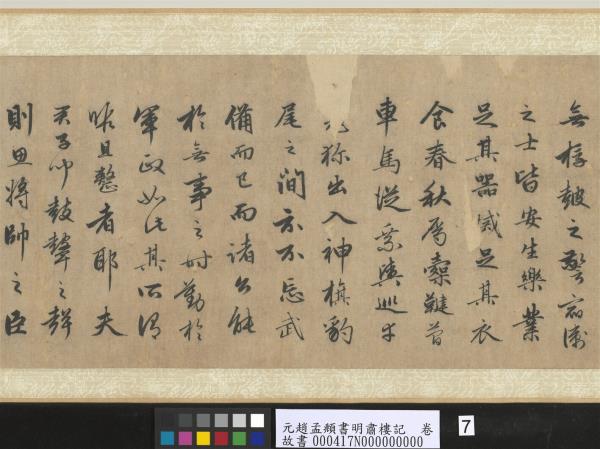 無桴鼓之警宿衛
之士皆安生樂業
足其器械足其衣
食春秋屬櫜鞬
車馬從乘輿巡幸
獮出入神旗豹
尾之間亦不忘武
備而已而諸公能
於無事之時勤於
軍政如此其所謂
暇且整者耶夫
君子聞鼓鼙之聲
則思將帥之臣
元趙孟頫書明肅樓記 卷
故書 000417N000000000
7